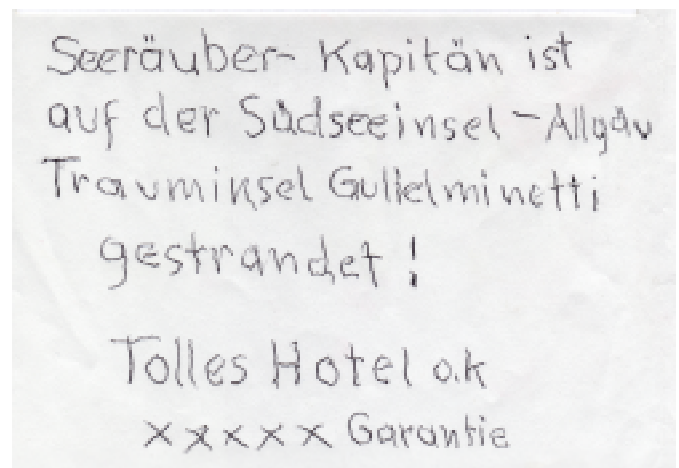 Seeräuber- Kapitän ist
auf der Südseeinsel - Allgäu
Trauminsel Gulielminetti
gestrandet !
Tolles Hotel o.k
x x x x x Garantie